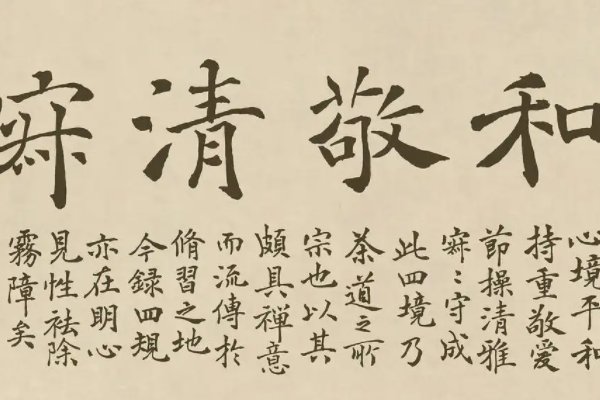 和敬清寂
心境平和
持重敬愛
節操清雅
寂〻守成
此四境乃
茶道之所
宗也以其
頗具禪意
而流傳於
脩習之地
今録四規
亦在明心
見性祛除
霧障矣